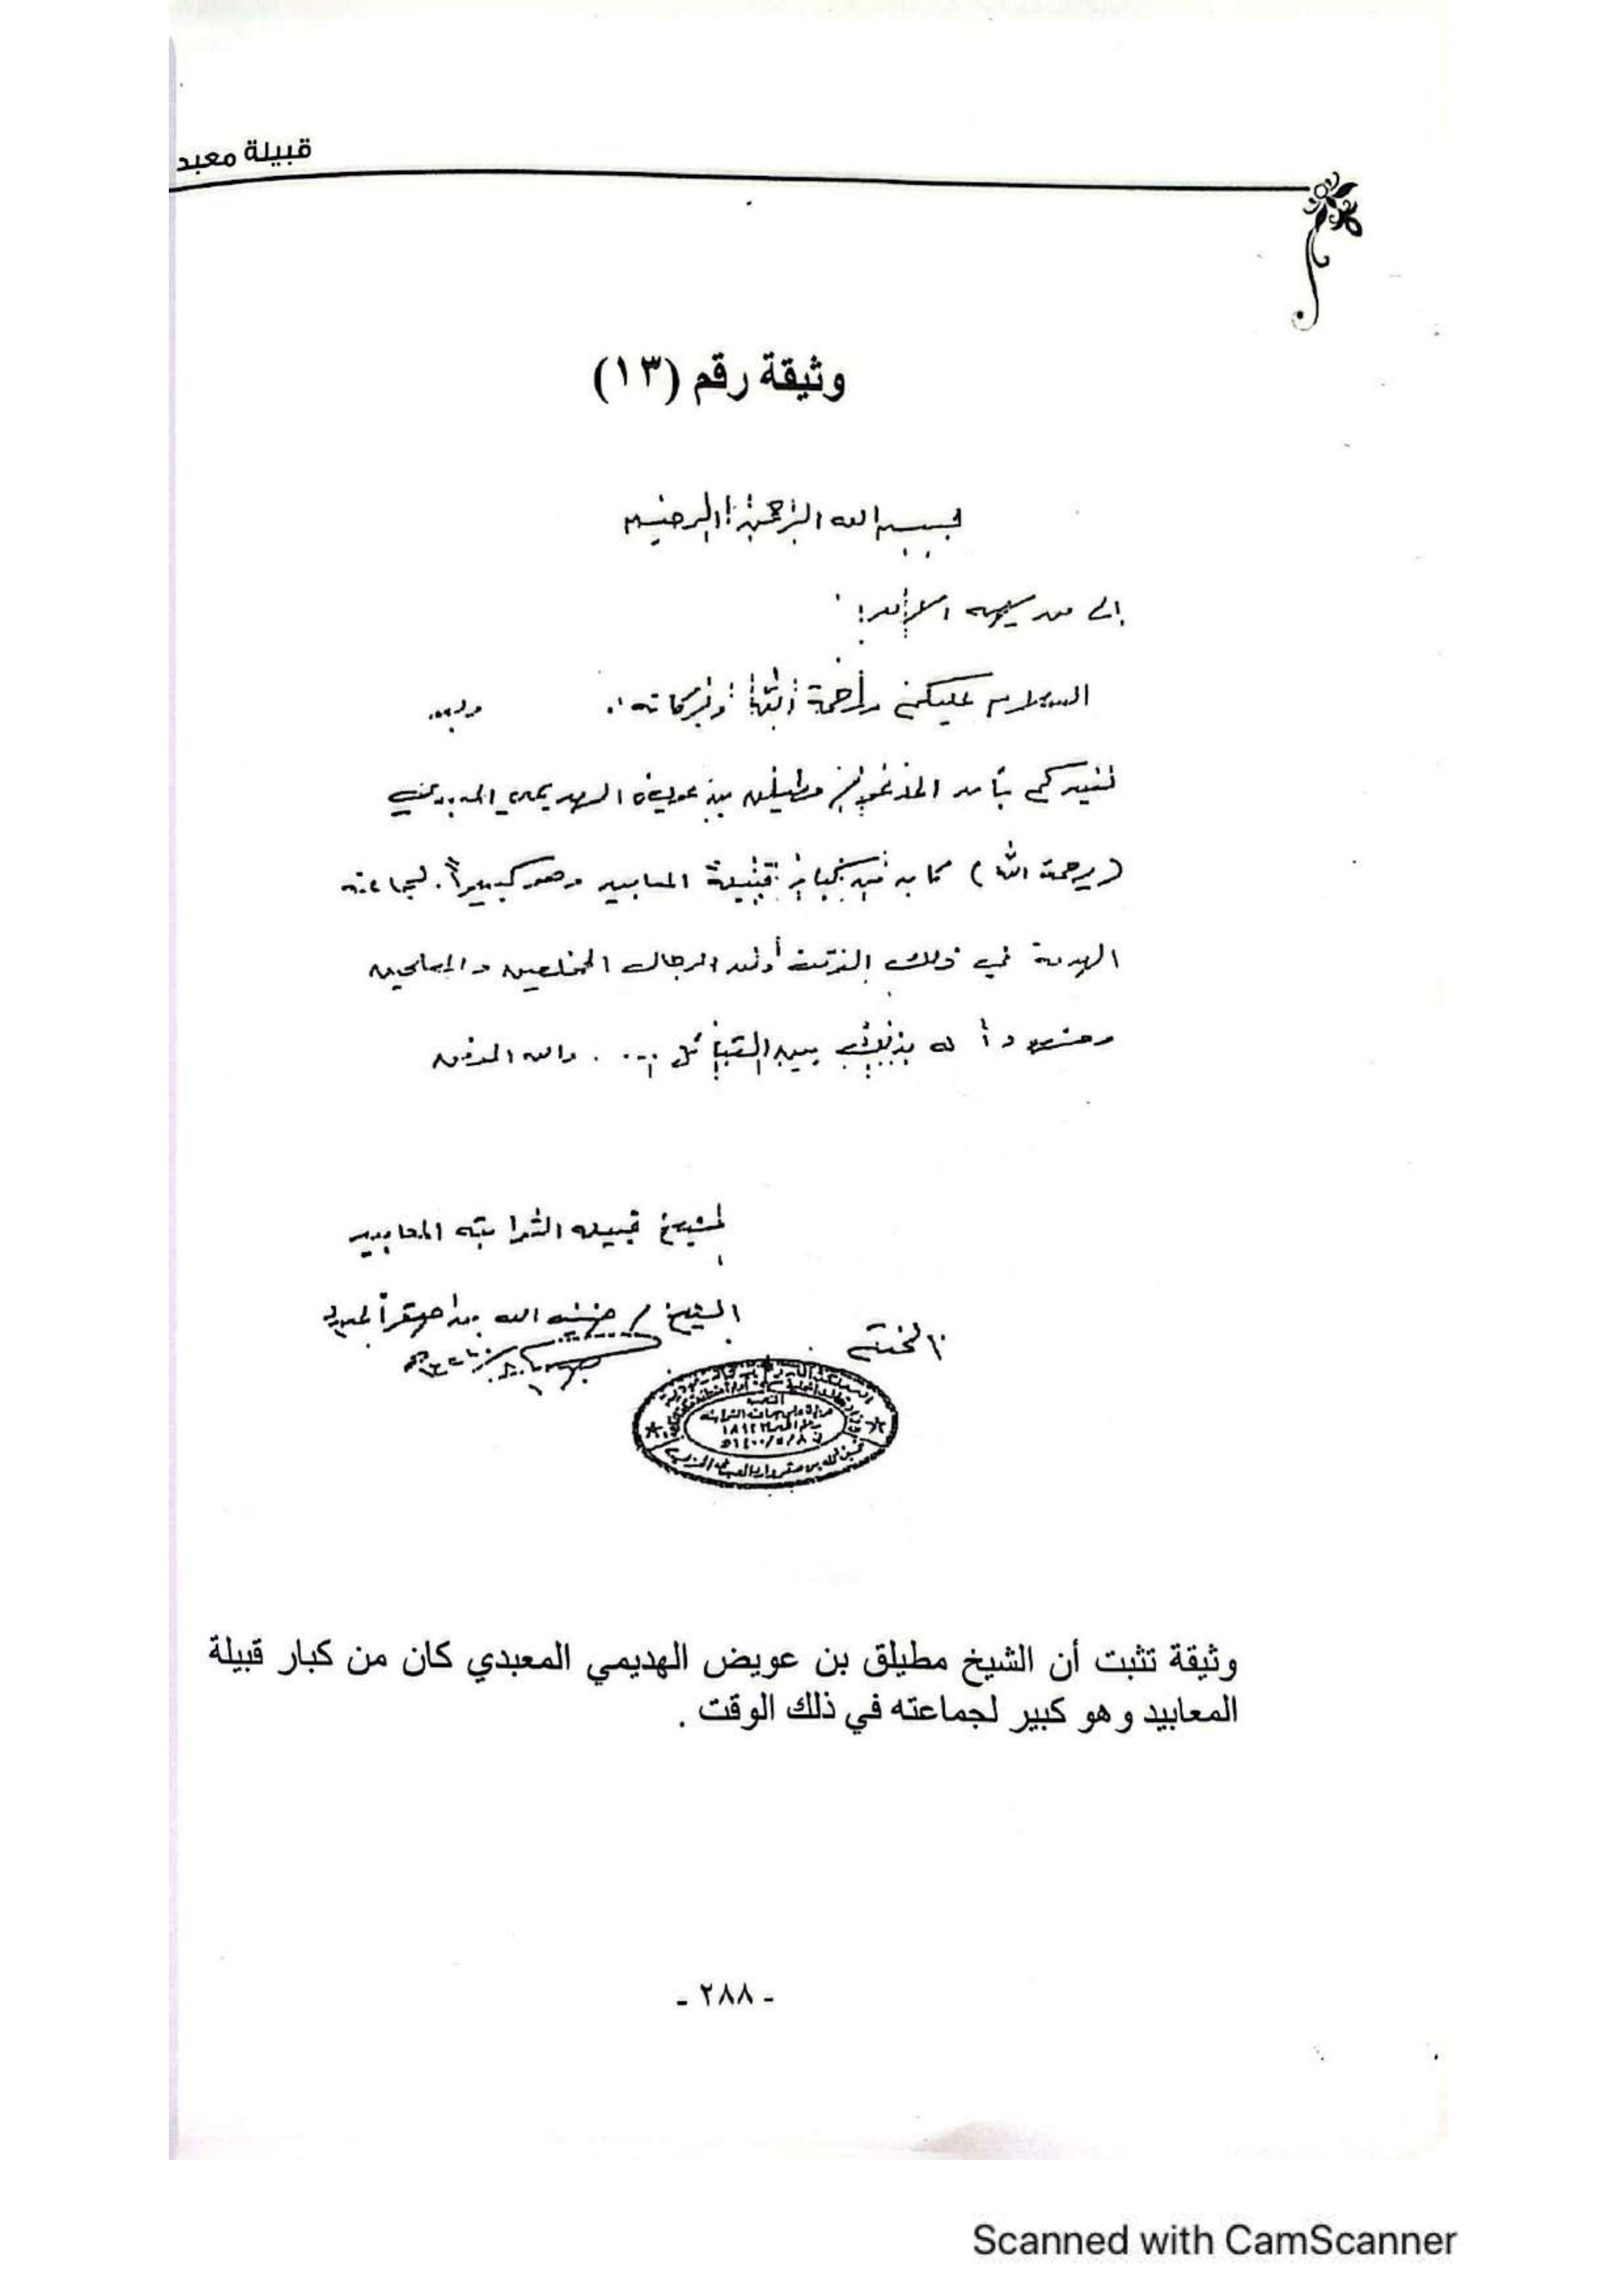 قبيلة معبد
وثيقة رقم (١٣)
بسم الله الرحمن الرحيم
إلى من يهمه الأمر
السلام عليكم ورحمة الله وبركاته .. وبعد
نفيدكم بأن المذكور مطيلق بن عويض الهديمي المعبدي
(يرحمه الله) كان من كبار قبيلة المعابيد وهو كبيراً لجماعته
في ذلك الوقت ومن الرجال المخلصين والصالحين
له بذلك بين القبائل ... والله الموفق
شيخ قبيله الثرابته المعابيد
الختم
الشيخ /
وثيقة تثبت أن الشيخ مطيلق بن عويض الهديمي المعبدي كان من كبار قبيلة
المعابيد وهو كبير لجماعته في ذلك الوقت .
- ٢٨٨ -
Scanned with CamScanner